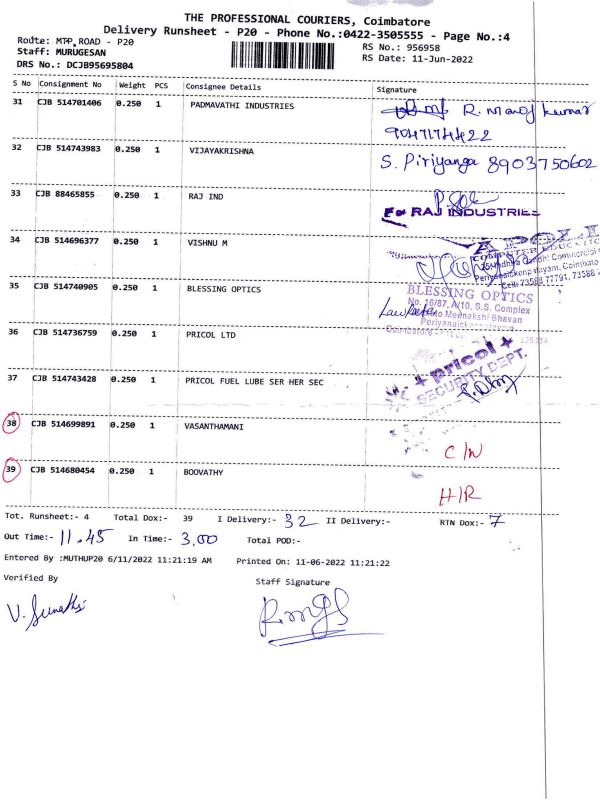 THE PROFESSIONAL COURIERS, Coimbatore
Delivery Runsheet - P20 - Phone No.:0422-3505555 - Page No.:4
Route: MTP ROAD - P20
RS No.: 956958
Staff: MURUGESAN
RS Date: 11-Jun-2022
DRS No.: DCJB95695804
S No Consignment No Weight PCS Consignee Details Signature
31 CJB 514701406 0.250 1 PADMAVATHI INDUSTRIES R. Manoj kumar
32 CJB 514743983 0.250 1 VIJAYAKRISHNA S. Piriyanga 8903750602
33 CJB 88465855 0.250 1 RAJ IND
For RAJ INDUSTRIES
34 CJB 514696377 0.250 1 VISHNU M
35 CJB 514740905 0.250 1 BLESSING OPTICS
BLESSING OPTICS
No. 16/87, A/10, S.S. Complex
Meenakshi Bhavan
36 CJB 514736759 0.250 1 PRICOL LTD
pricol
SECURITY DEPT.
37 CJB 514743428 0.250 1 PRICOL FUEL LUBE SER HER SEC
38 CJB 514699891 0.250 1 VASANTHAMANI C/N
39 CJB 514680454 0.250 1 BOOVATHY H/R
Tot. Runsheet:- 4 Total Dox:- 39 I Delivery:- 32 II Delivery:- RTN Dox:- 7
Out Time:- 11.45 In Time:- 3.00 Total POD:-
Entered By :MUTHUP20 6/11/2022 11:21:19 AM Printed On: 11-06-2022 11:21:22
Verified By Staff Signature